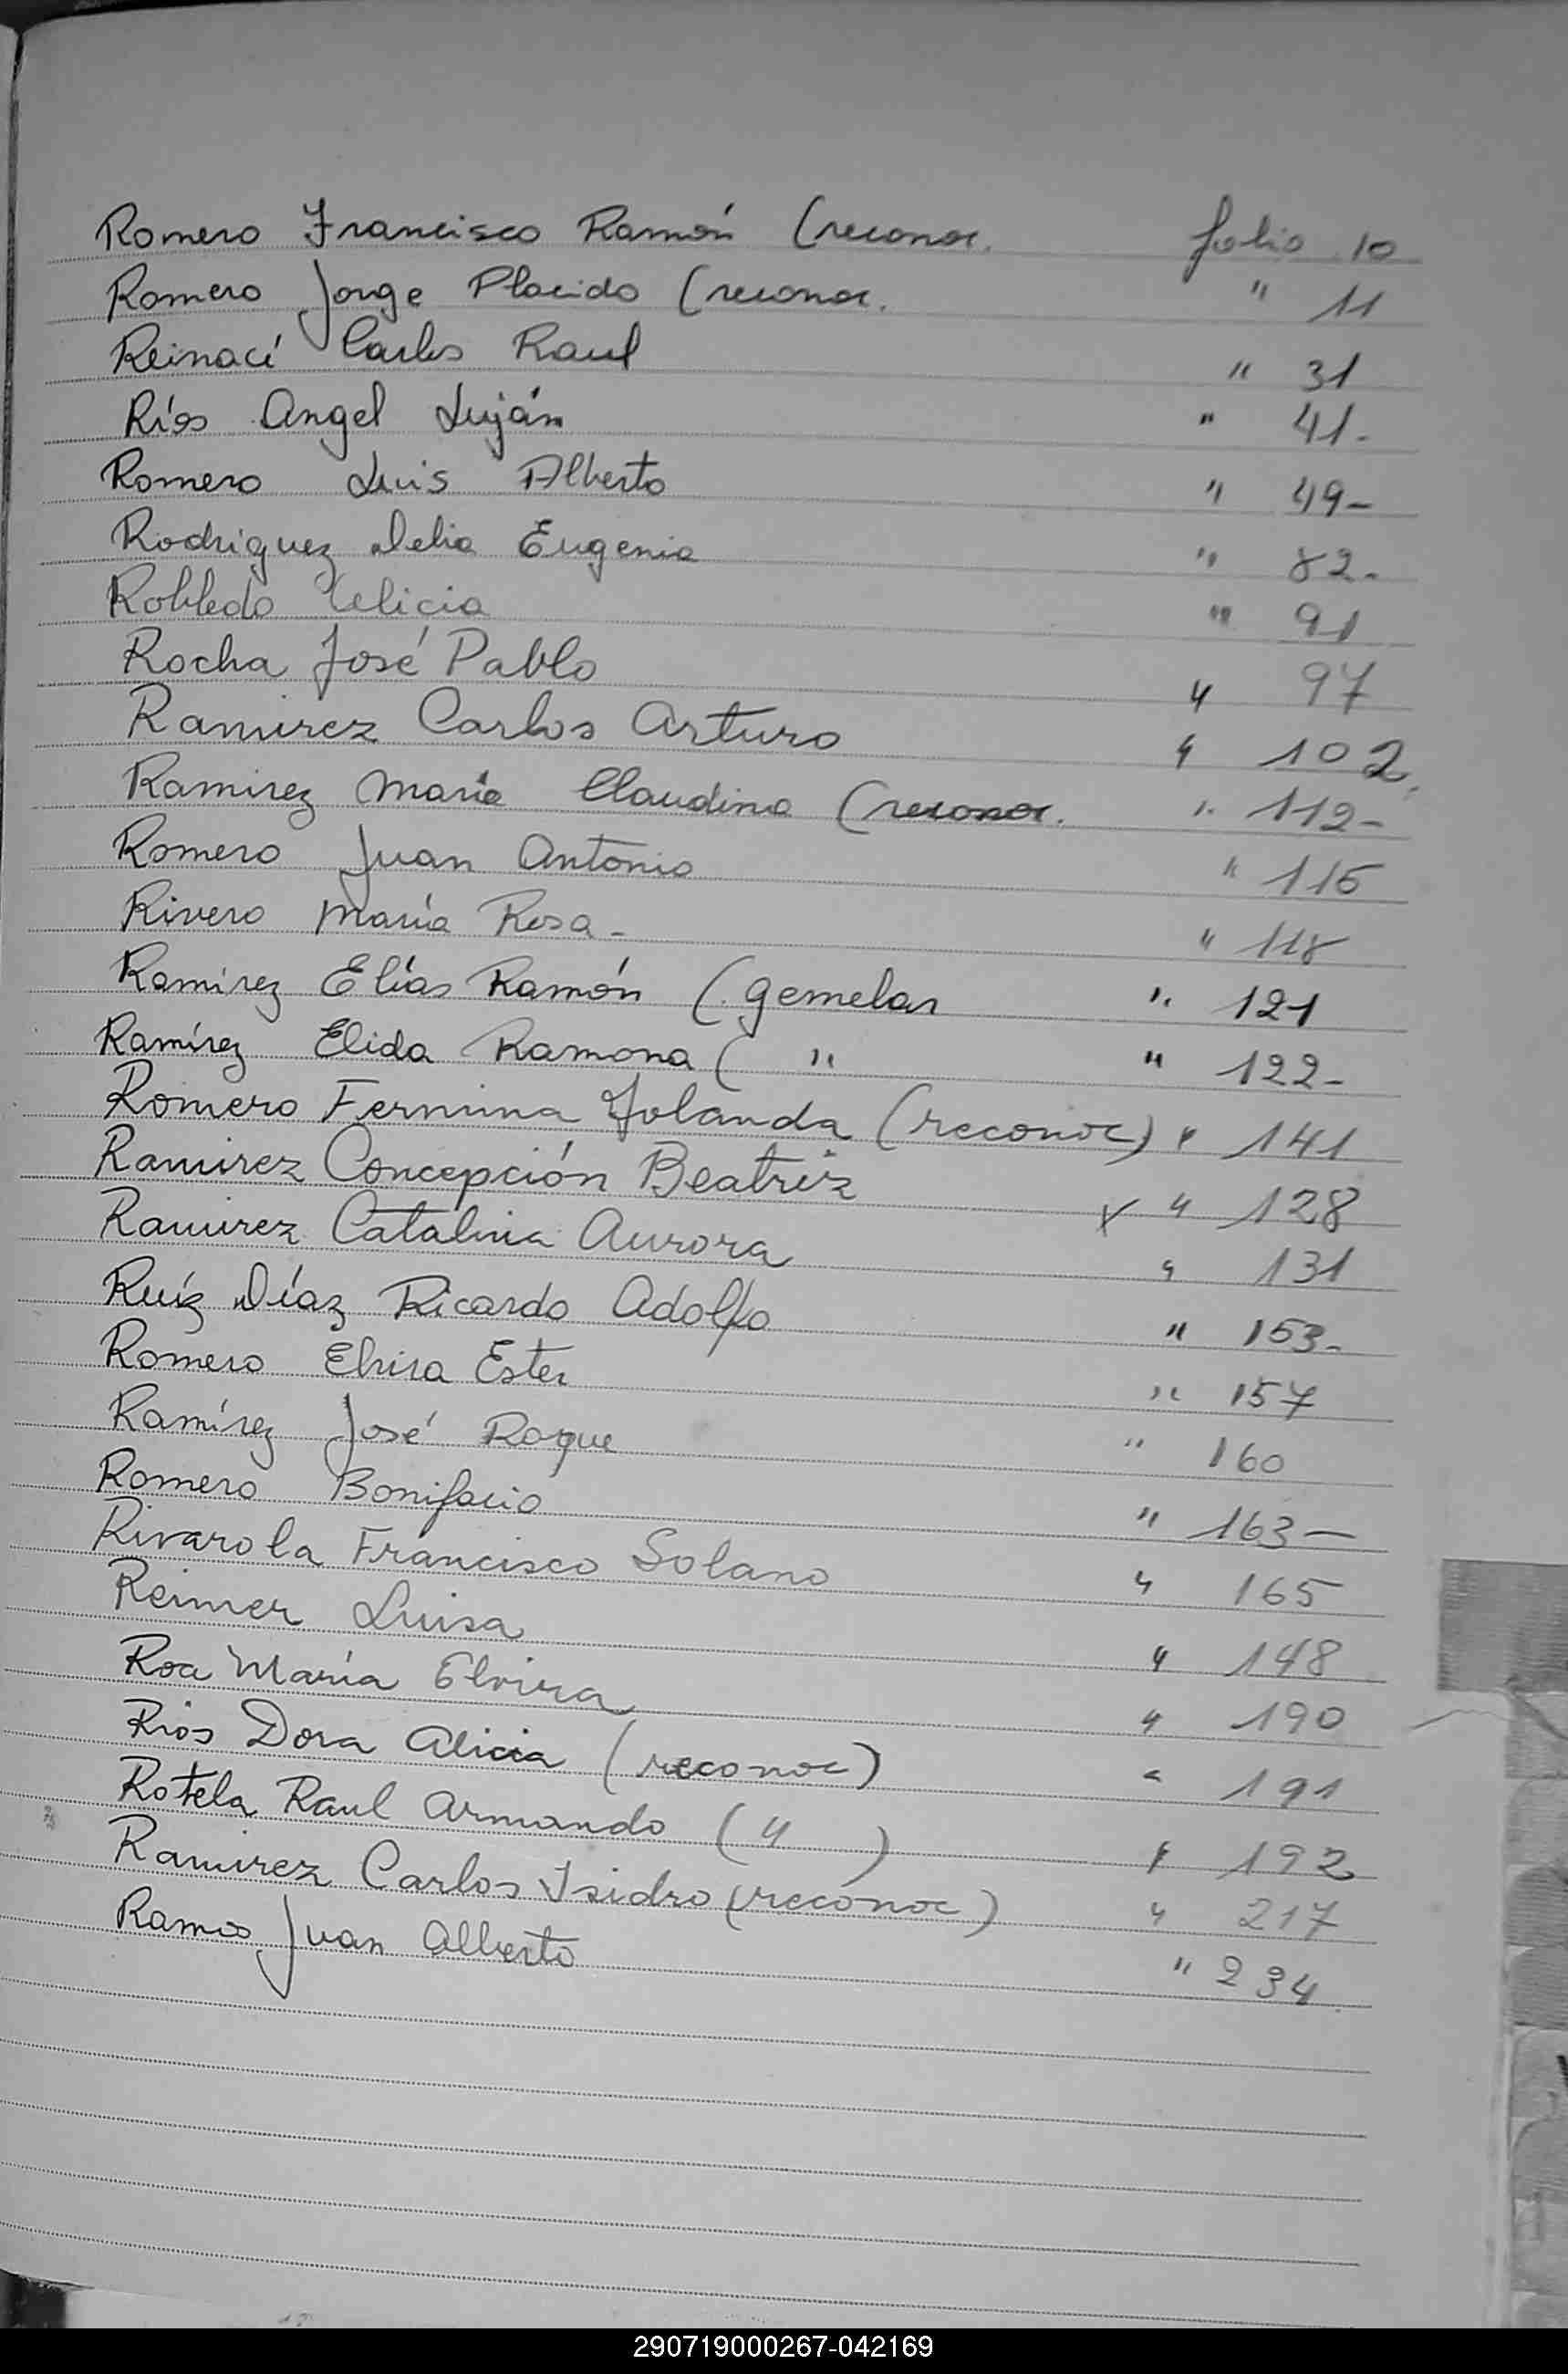 Romero Francisco Ramón (reconoc. folio 10
Romero Jorge Placido (reconoc. " 11
Reinaci Carlos Raul " 31
Ríos Angel Luján " 41-
Romero Luis Alberto " 49-
Rodriguez Delia Eugenia " 82-
Robledo Felicia " 91
Rocha José Pablo " 97
Ramirez Carlos Arturo " 102.
Ramirez Maria Claudina (reconoc. " 112-
Romero Juan Antonio " 115
Rivero María Rosa - " 118
Ramírez Elías Ramón (gemelar " 121
Ramírez Elida Ramona ( " " 122-
Romero Fermina Yolanda (reconoc) " 141
Ramirez Concepción Beatriz x " 128
Ramirez Catalina Aurora " 131
Ruíz Díaz Ricardo Adolfo " 153-
Romero Elvira Ester " 157
Ramírez José Roque " 160
Romero Bonifacio " 163-
Rivarola Francisco Solano " 165
Reimer Luisa " 148
Roa María Elvira " 190
Rios Dora Alicia (reconoc) " 191
Rotela Raul Armando ( " ) " 192
Ramirez Carlos Isidro (reconoc) " 217
Ramos Juan Alberto " 234
290719000267-042169